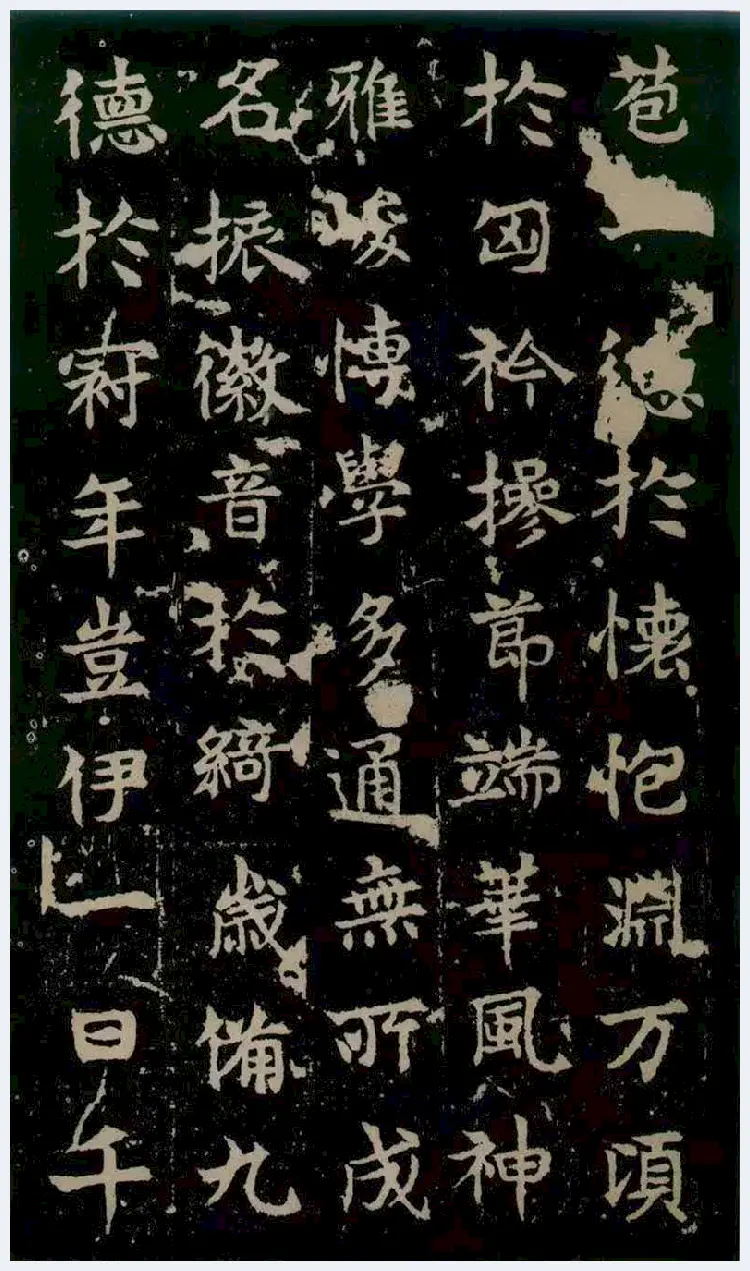 苞德於懷抱淵万頃
於匈衿操節端華風神
雅峻愽學多通無所成
名振徽音於綺歲備九
德於冠年豈伊一日千